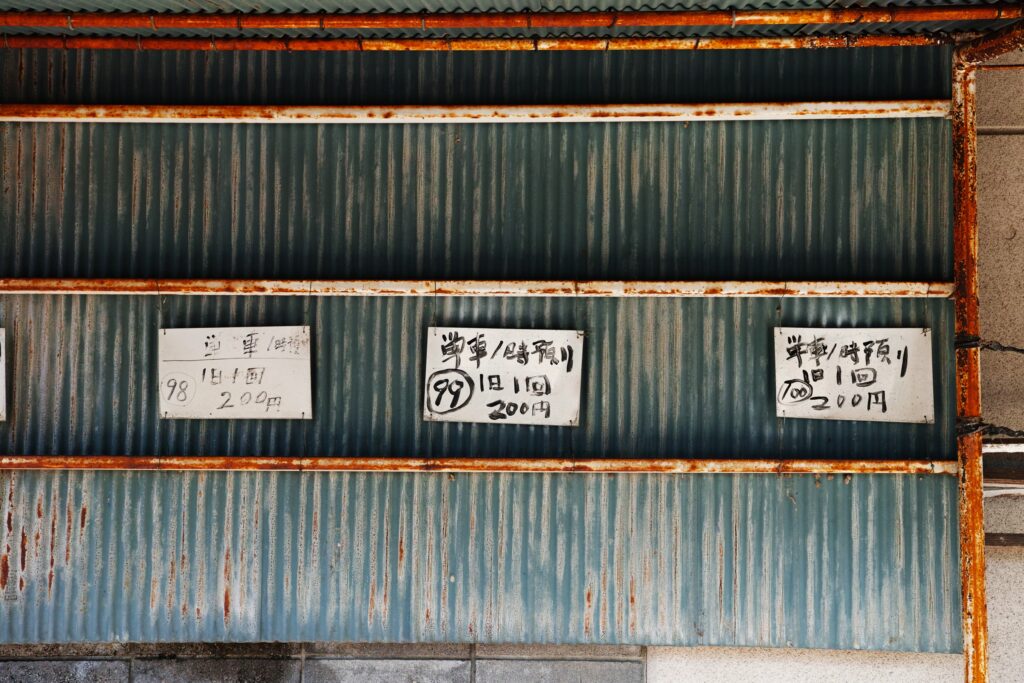 単車一時預
1日1回
98
200円
単車一時預り
99 1日1回
200円
単車一時預り
1日1回
100 200円